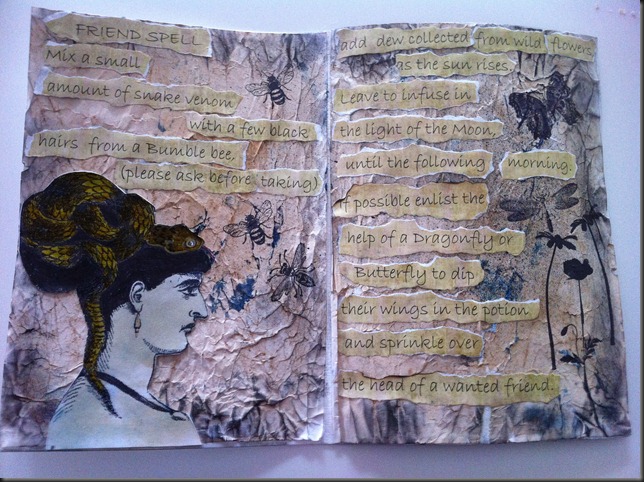 FRIEND SPELL
Mix a small
amount of snake venom
with a few black
hairs from a Bumble bee,
(please ask before taking)
add dew collected from wild flowers
as the sun rises
Leave to infuse in
the light of the Moon,
until the following morning.
if possible enlist the
help of a Dragonfly or
Butterfly to dip
their wings in the potion.
and sprinkle over
the head of a wanted friend.